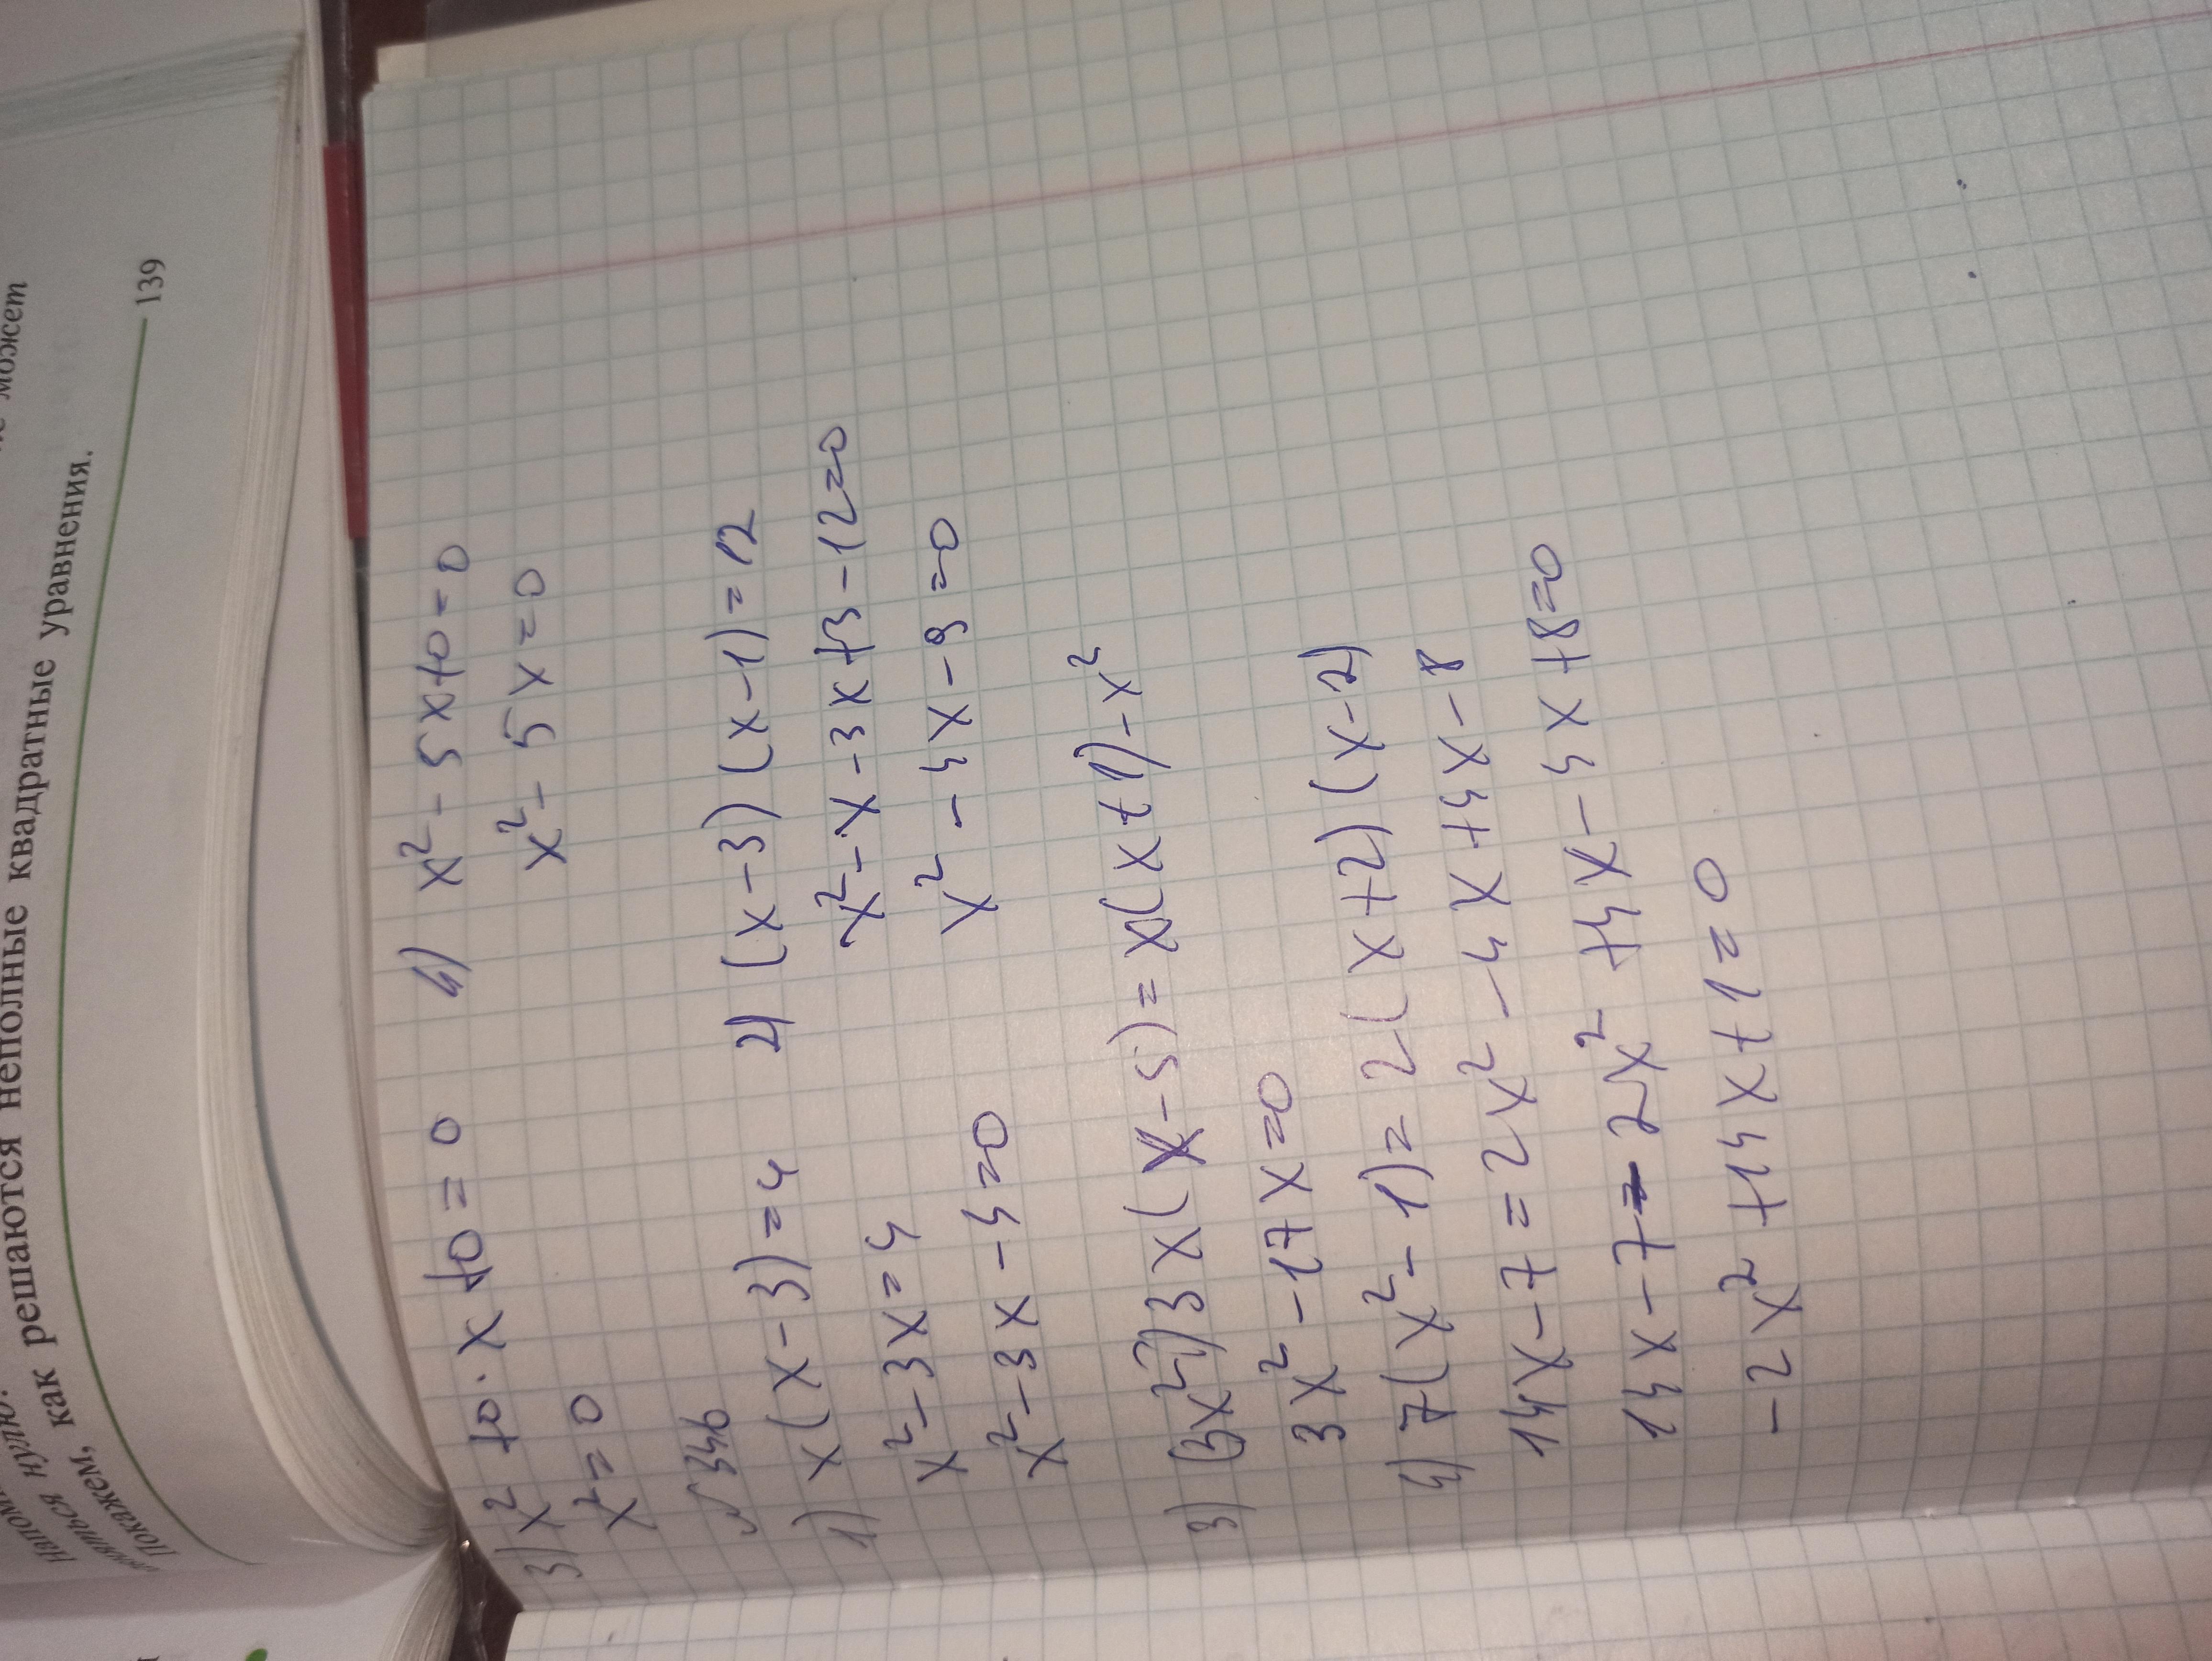 может
нулю.
Покажем, как решаются неполные квадратные уравнения.
139
3) x² + 0 · x + 0 = 0 4) x² - 5x + 0 = 0
x² = 0 x² - 5x = 0
№346
1) x(x - 3) = 4 2) (x - 3)(x - 1) = 12
x² - 3x = 4 x² - x - 3x + 3 - 12 = 0
x² - 3x - 4 = 0 x² - 4x - 9 = 0
3) 3x(x - 5) = x(x + 1) - x²
3x² - 17x = 0
4) 7(x² - 1) = 2(x + 2)(x - 2)
14x - 7 = 2x² - 4x + 4x - 8
14x - 7 - 2x² + 4x - 4x + 8 = 0
-2x² + 14x + 1 = 0